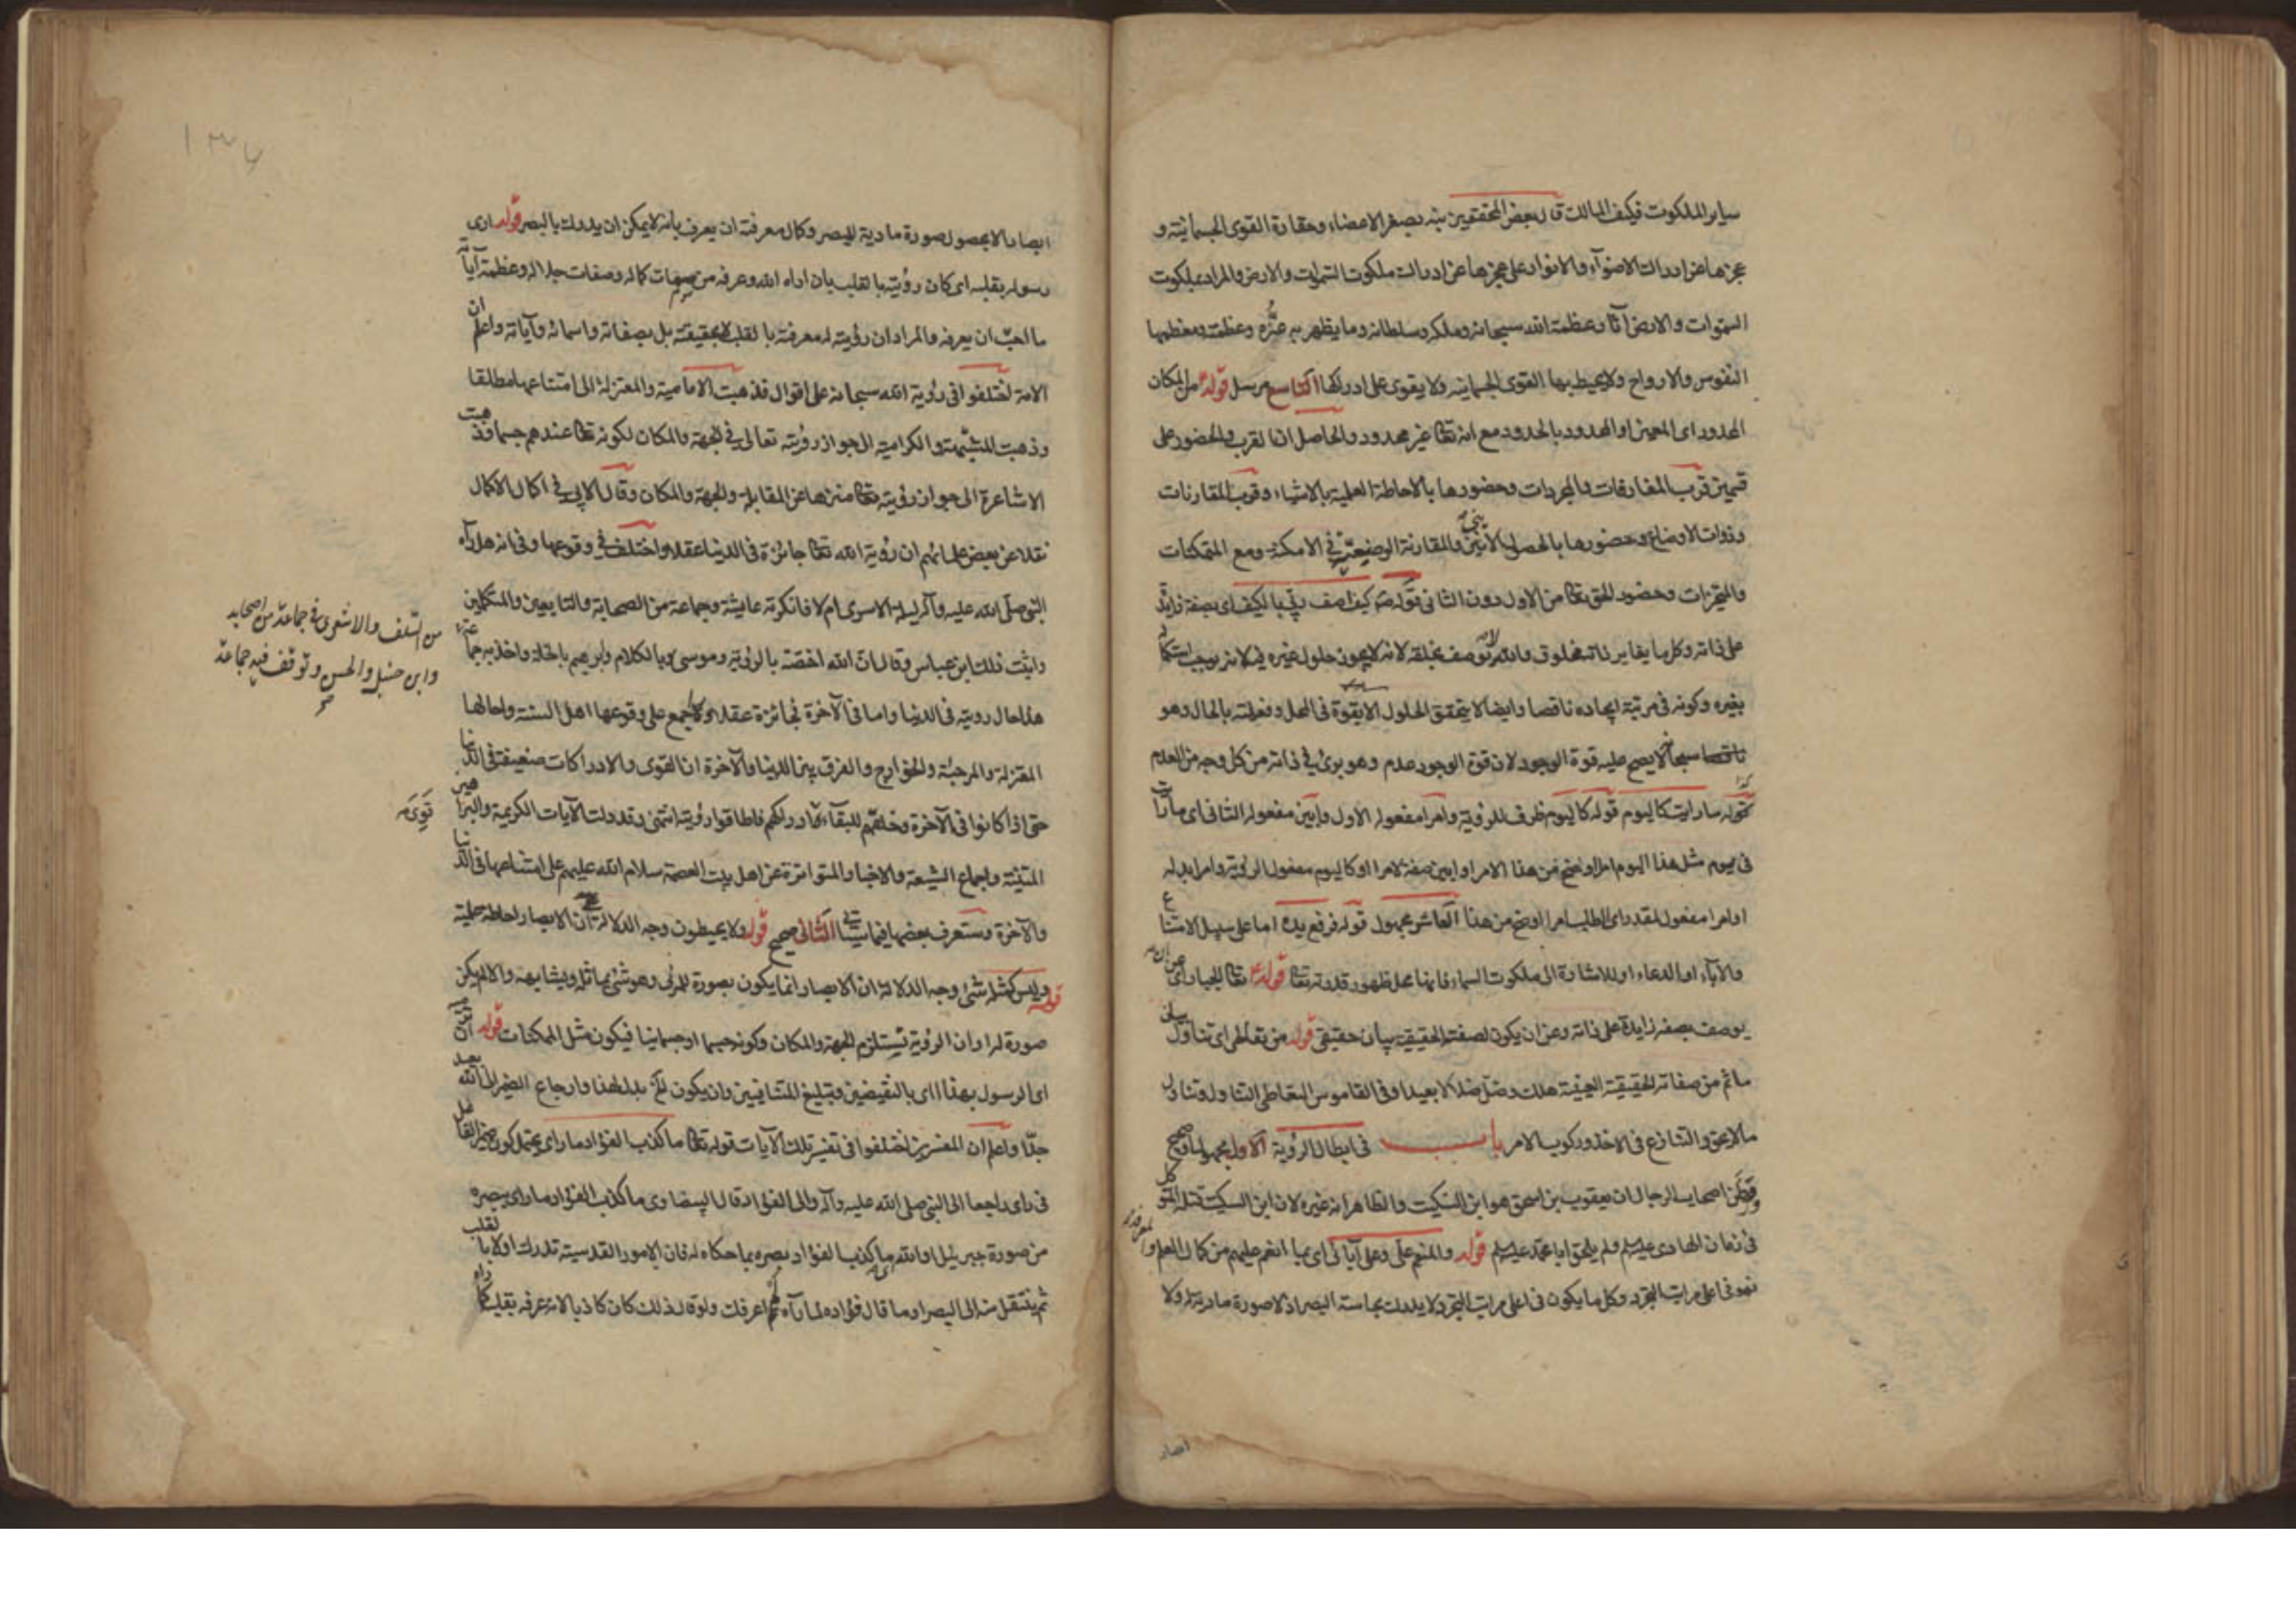 ساير الملكوت فكيف المالك قال بعض المحققين نبه بصغر الاعضاء وحقارة القوى الجسمانية و
عجزها عن ادراك الاضواء والانوار على عجزها عن ادراك ملكوت السموات والارض والمراد بملكوت
السموات والارض آثار عظمة الله سبحانه وملكه وسلطانه وما يظهر به عزّه وعظمته ومعظمها
النفوس والارواح ولا يحيط بها القوى الجسمانية ولا يقوى على ادراكها التاسع مرسل قوله من المكان
المحدود اى المعين او المحدود بالحدود مع انه تعا غير محدود والحاصل ان القرب والحضور على
قسمين قرب المفارقات والمجردات وحضورها بالاحاطة العلمية بالاشياء وقرب المقارنات
وذوات الاوضاع وحضورها بالحصول الاينى والمقارنة الوضعية فى الامكنة ومع المتمكنات
والمتحيزات وحضور الحق تعا من الاول دون الثانى قوله كيف اصف ربّى بالكيف اى بصفة زايدة
على ذاته وكل ما يغاير ذاته مخلوق والله لا يوصف بخلقه لانه لا يجوز حلول غيره فيه لانه يوجب استكماله
بغيره وكونه فى مرتبة ايجاده ناقصا وايضا لا يتحقق الحلول الا بقوة فى المحل وفعلية بالحال وهو
سبحانه لا يصح عليه قوة الوجود لان قوة الوجود عدم وهو برئ فى ذاته من كل وجه من العدم
قوله ما رايت كاليوم قوله كاليوم ظرف للرؤية وامرا مفعوله الاول وابين مفعوله الثانى اى ما رأيت
فى يوم مثل هذا اليوم امرا اوضح من هذا الامر او ابين صفة لامرا او كاليوم مفعول الرؤية وامرا بدله
او امرا مفعول لمقدر اى اطلب امرا اوضح من هذا العاشر مجهول قوله فرفع يده اما على سبيل الامتناع
والاباء او الدعاء او للاشارة الى ملكوت السماء فانها محل ظهور قدرته تعا قوله تعا الجبار اى عن ان
يوصف بصفة زايدة على ذاته وعن ان يكون لصفته الحقيقية بيان حقيقى قوله من تعاطى اى تناول بيان
ماثم من صفاته الحقيقية العينية هلك وضل ضلالا بعيدا وفى القاموس التعاطى التناول وتناول
ما لا يحق والتنازع فى الاخذ وركوب الامر باب فى ابطال الرؤية الاول مجهول او صحيح
وظن اصحاب الرجال ان يعقوب بن اسحق هو ابن السكيت والظاهر انه غيره لان ابن السكيت قتله المتوكل
فى زمان الهادى عليه السلم ولم يلحق ابا محمد عليه السلم قوله والمنعم علىّ وعلى آبائى اى بما انعم عليهم من كمال العلم والمعرفة
فهو فى اعلى مراتب التجرد وكل ما يكون فى اعلى مراتب التجرد لا يدرك بحاسة البصر اذ لا صورة مادية له ولا
ابصار
١٣٧
ابصار الا بحصول صورة مادية للبصر وكمال معرفته ان يعرف بأنه لا يمكن ان يدرك بالبصر قوله ارى
رسوله بقلبه اى كان رؤيته بالقلب بان اراه الله وعرفه من صفات كماله وصفات جلاله وعظمة آياته
ما احبّ ان يعرفه والمراد ان رؤيته له معرفته بالقلب لا بحقيقته بل بصفاته واسمائه وآياته واعلم ان
الامة اختلفوا فى رؤية الله سبحانه على اقوال فذهبت الامامية والمعتزلة الى امتناعها مطلقا
وذهبت المشبهة والكرامية الى جواز رؤيته تعالى فى الجهة والمكان لكونه تعا عندهم جسما وذهبت
الاشاعرة الى جواز رؤيته تعا منزها عن المقابلة والجهة والمكان وقال الآبى فى اكمال الاكمال
نقلا عن بعض علمائهم ان رؤية الله تعا جائزة فى الدنيا عقلا واختلف فى وقوعها وفى انه هل رآه
النبى صلى الله عليه وآله ليلة الاسرى ام لا فانكرته عايشة وجماعة من الصحابة والتابعين والمتكلمين
واثبت ذلك ابن عباس وقال ان الله اختصّه بالرؤية وموسى بالكلام وابرهيم بالخلة واخذ به جماعة
من السلف والاشعرى فى جماعة من اصحابه
وابن حنبل والحسن وتوقف فيه جماعة
هذا حال رويته فى الدنيا واما فى الآخرة فجائزة عقلا واجمع على وقوعها اهل السنة واحالها
المعتزلة والمرجئة والخوارج والفرق بين الدنيا والآخرة ان القوى والادراكات ضعيفة فى الدنيا
حتى اذا كانوا فى الآخرة وخلقهم للبقاء قوى ادراكهم فاطاقوا رؤيته انتهى وقد دلت الآيات الكريمة والبراهين
المتينة واجماع الشيعة والاخبار المتواترة عن اهل بيت العصمة سلام الله عليهم على امتناعها فى الدنيا
والآخرة وستعرف بعضها فيما سيأتى الثانى صحيح قوله ولا يحيطون وجه الدلالة ان الابصار احاطة علمية
قوله وليس كمثله شئ وجه الدلالة ان الابصار انما يكون بصورة للمرئى وهو شئ يماثله ويشابهه والا لم يكن
صورة له او ان الرؤية تستلزم الجهة والمكان وكونه جسما او جسمانيا فيكون مثل الممكنات قوله
اى الرسول بهذا اى بالنقيضين وتبليغ المتنافيين وان يكون بدل لهذا وارجاع الضمير الى الله بعيد
جدّا واعلم ان المفسرين اختلفوا فى تفسير تلك الآيات قوله تعا ما كذب الفؤاد ما راى يحتمل كون ضمير الفاعل
فى راى راجعا الى النبى صلى الله عليه وآله والى الفؤاد قال البيضاوى ما كذب الفؤاد ما راى ببصره
من صورة جبرئيل او الله اى ما كذب الفؤاد بصره بما حكاه له فان الامور القدسية تدرك اولا بالقلب
ثم ينتقل منه الى البصر او ما قال فؤاده لما رآه لم اعرفك ولو قال ذلك كان كاذبا لانه عرفه بقلبه كما رآه